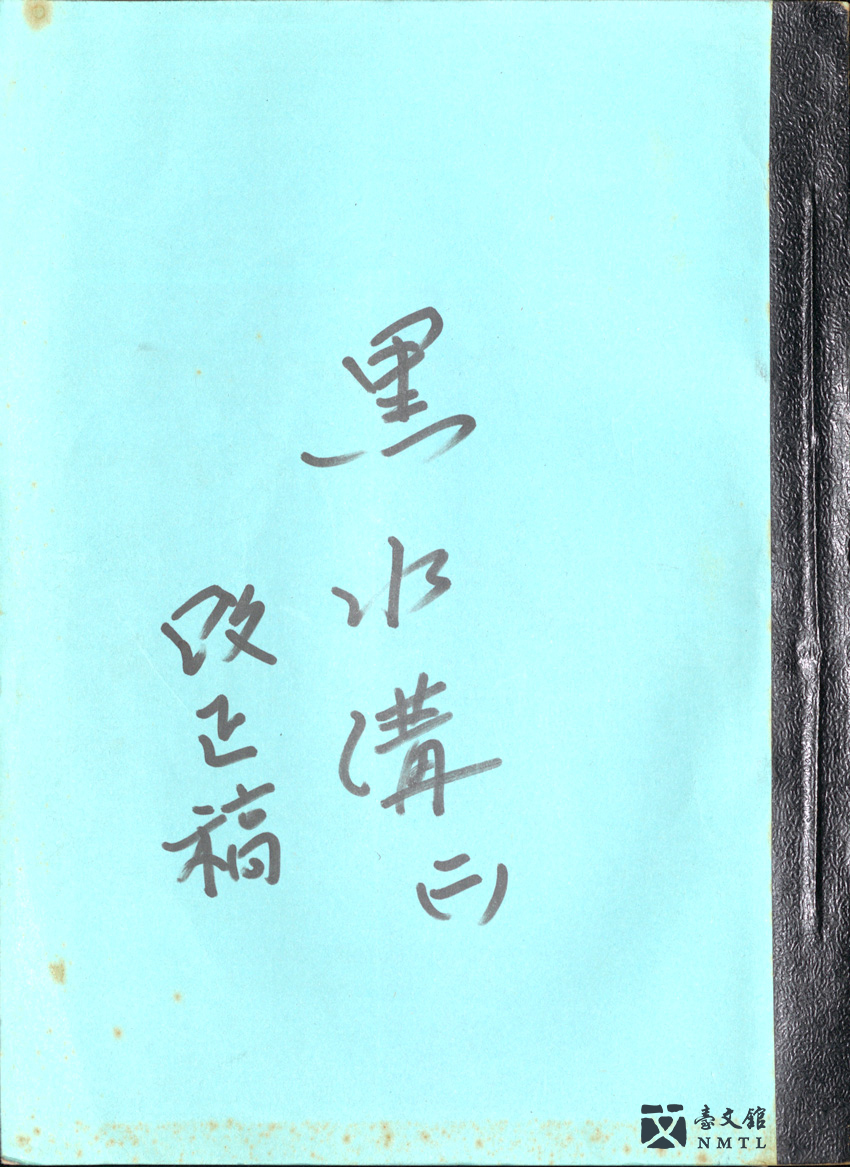 黑水溝(二)
改正稿
臺文館
NMTL